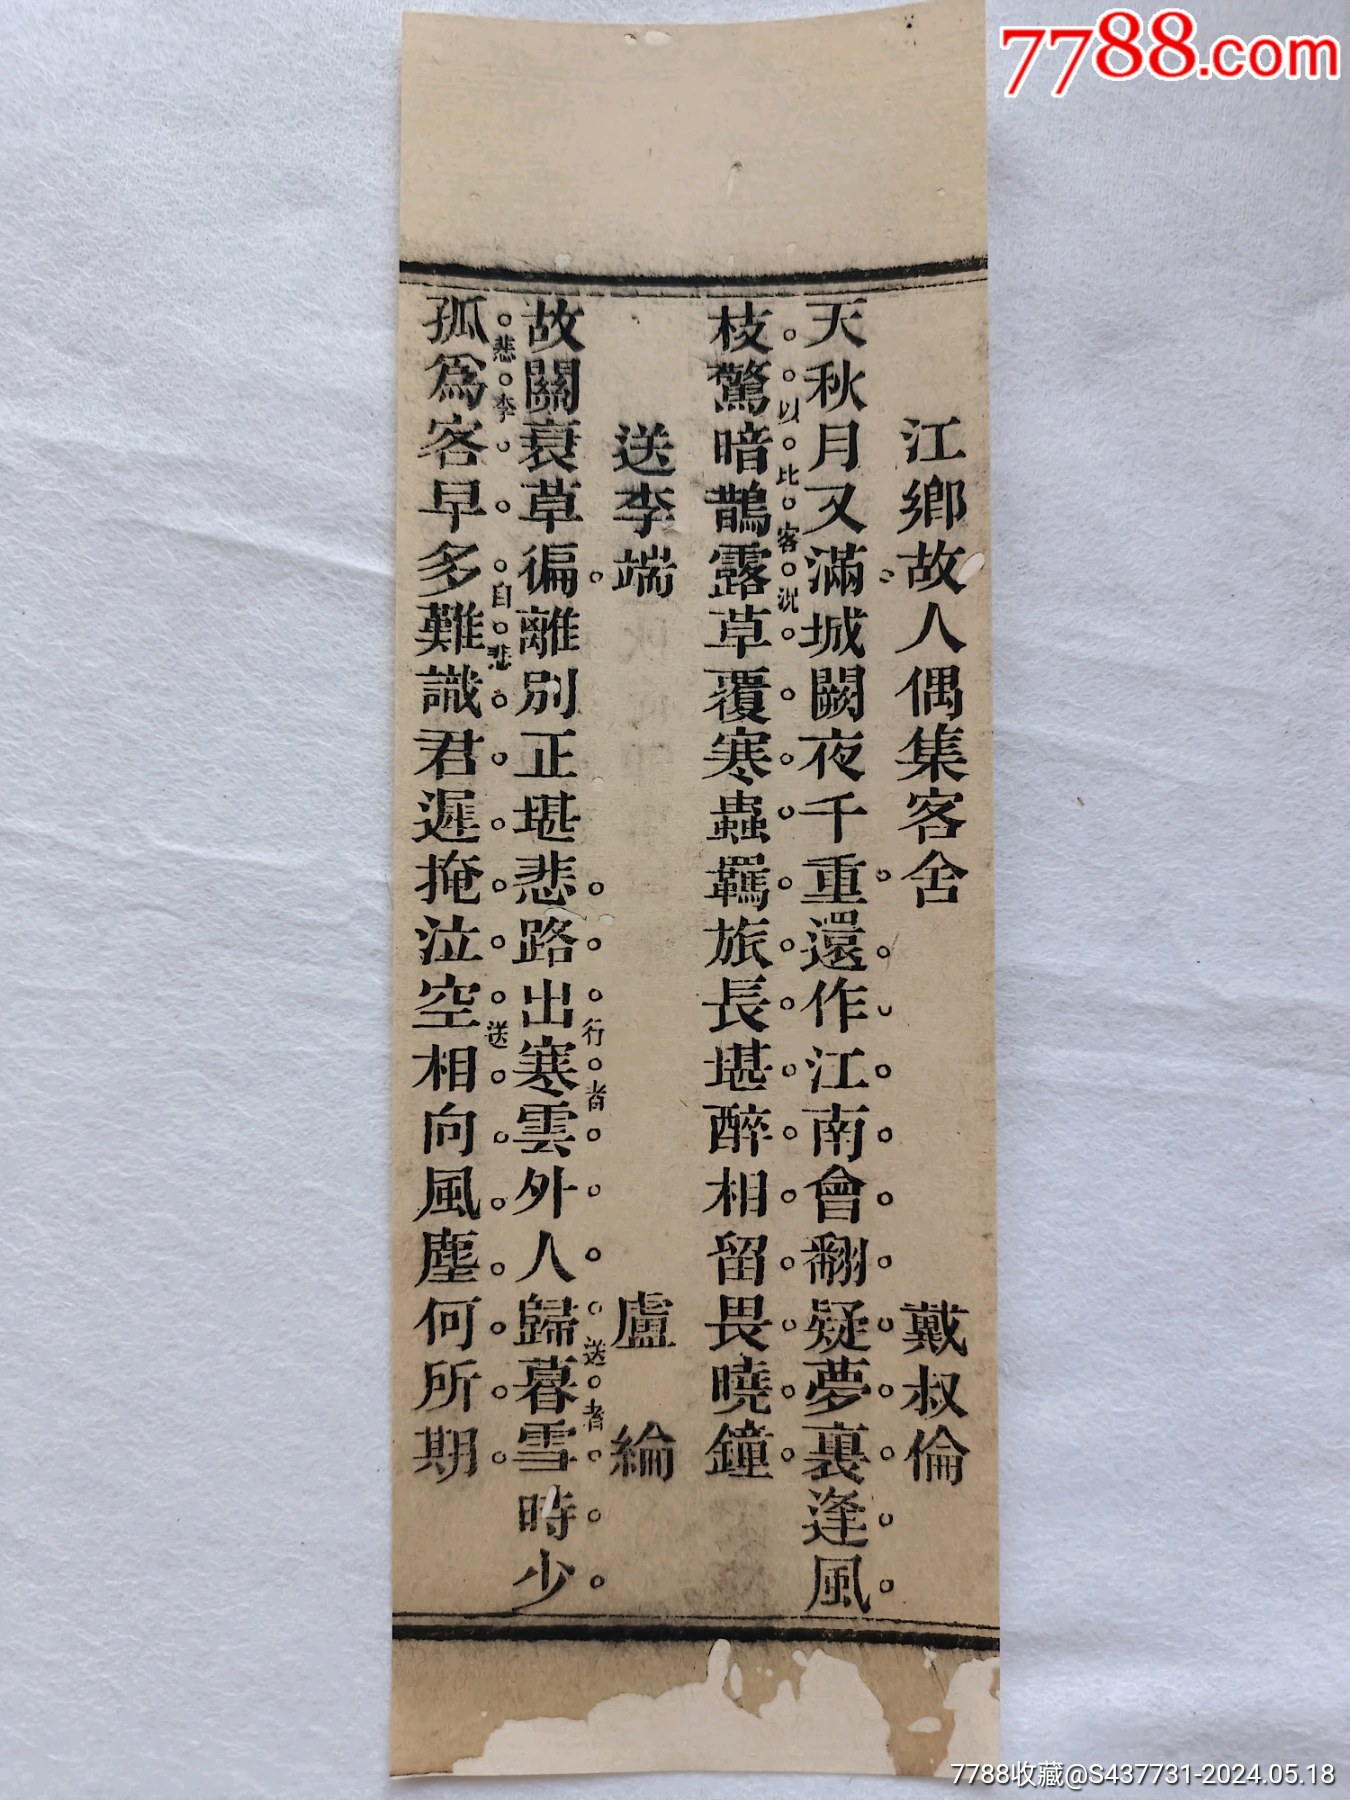 7788.com
江鄉故人偶集客舍 戴叔倫
天秋月又滿城闕夜千重還作江南會翻疑夢裏逢風
以比客況
枝驚暗鵲露草覆寒蟲羈旅長堪醉相留畏曉鐘
送李端 盧綸
行者 送者
故關衰草徧離別正堪悲路出寒雲外人歸暮雪時少
悲李 自悲 送
孤爲客早多難識君遲掩泣空相向風塵何所期
7788收藏@S437731-2024.05.18